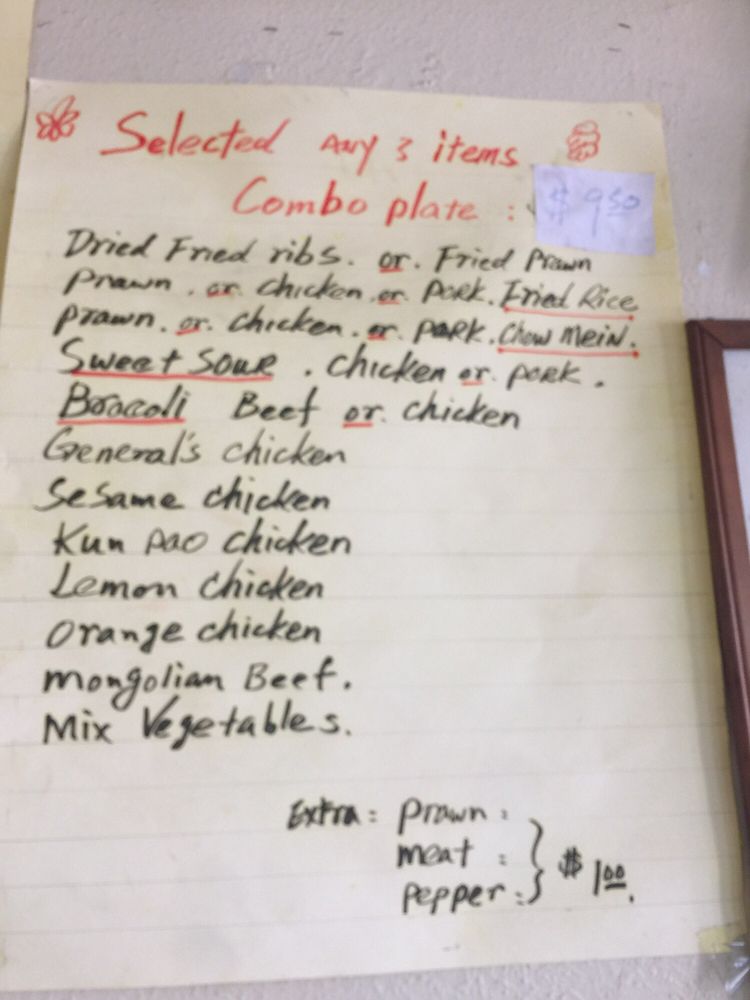 Selected Any 3 items
Combo plate : $ 9.50
Dried Fried ribs. or. Fried Prawn
Prawn . or. chicken .or. Pork. Fried Rice
Prawn. or. chicken. or. Pork. Chow Mein.
Sweet Sour . chicken or. pork .
Broccoli Beef or. chicken
General's chicken
Sesame chicken
Kun Pao chicken
Lemon chicken
Orange chicken
Mongolian Beef.
Mix Vegetables.
Extra : Prawn :
meat :
pepper : } $ 1.00.